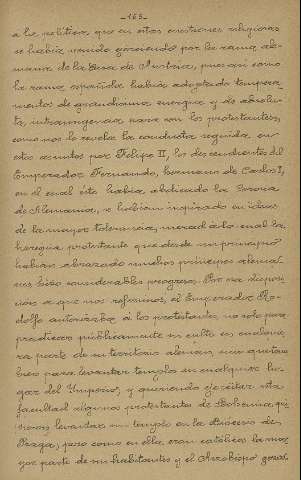 -165-
a la política que en estas cuestiones religiosas
se había venido ejerciendo por la rama ale-
mana de la Casa de Austria, pues así como
la rama española había adoptado tempera-
mentos de grandísima energía y de absolu-
ta intransigencia para con los protestantes,
como nos lo revela la conducta seguida en
estos asuntos por Felipe II, los descendientes del
Emperador Fernando, hermano de Carlos I,
en el cual éste había abdicado la Corona
de Alemania, se habían inspirado en ideas
de la mayor tolerancia, merced a lo cual la
heregía protestante que desde un principio
habían abrazado muchos príncipes alema-
nes hizo considerables progresos. Por la disposi-
ción a que nos referimos, el Emperador Ro-
dolfo autorizaba á los protestantes, no solo para
practicar públicamente su culto en cualquie-
ra parte de su territorio alemán, sino que tam-
bién para levantar templos en cualquier lu-
gar del Imperio, y queriendo ejercitar esta
facultad algunos protestantes de Bohemia qui-
sieron levantar un templo en la Diócesis de
Praga; pero como en ella eran católicos la ma-
yor parte de sus habitantes y el Arzobispo gozaba